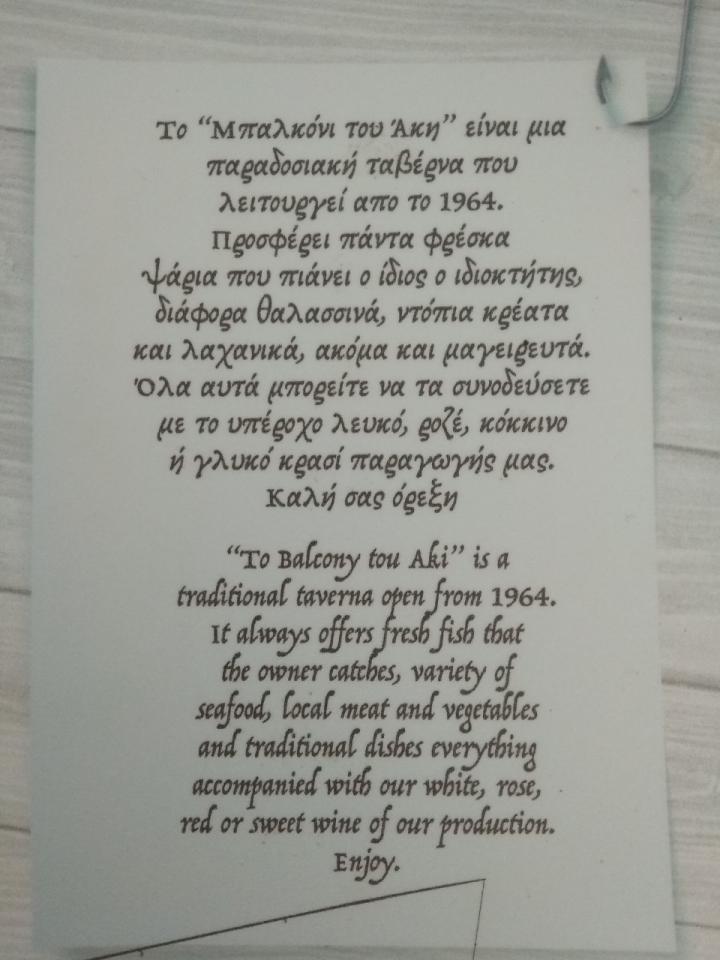 Το “Μπαλκόνι του Άκη” είναι μια
παραδοσιακή ταβέρνα που
λειτουργεί απο το 1964.
Προσφέρει πάντα φρέσκα
ψάρια που πιάνει ο ίδιος ο ιδιοκτήτης,
διάφορα θαλασσινά, ντόπια κρέατα
και λαχανικά, ακόμα και μαγειρευτά.
Όλα αυτά μπορείτε να τα συνοδεύσετε
με το υπέροχο λευκό, ροζέ, κόκκινο
ή γλυκό κρασί παραγωγής μας.
Καλή σας όρεξη
“To Balcony tou Aki” is a
traditional taverna open from 1964.
It always offers fresh fish that
the owner catches, variety of
seafood, local meat and vegetables
and traditional dishes everything
accompanied with our white, rose,
red or sweet wine of our production.
Enjoy.